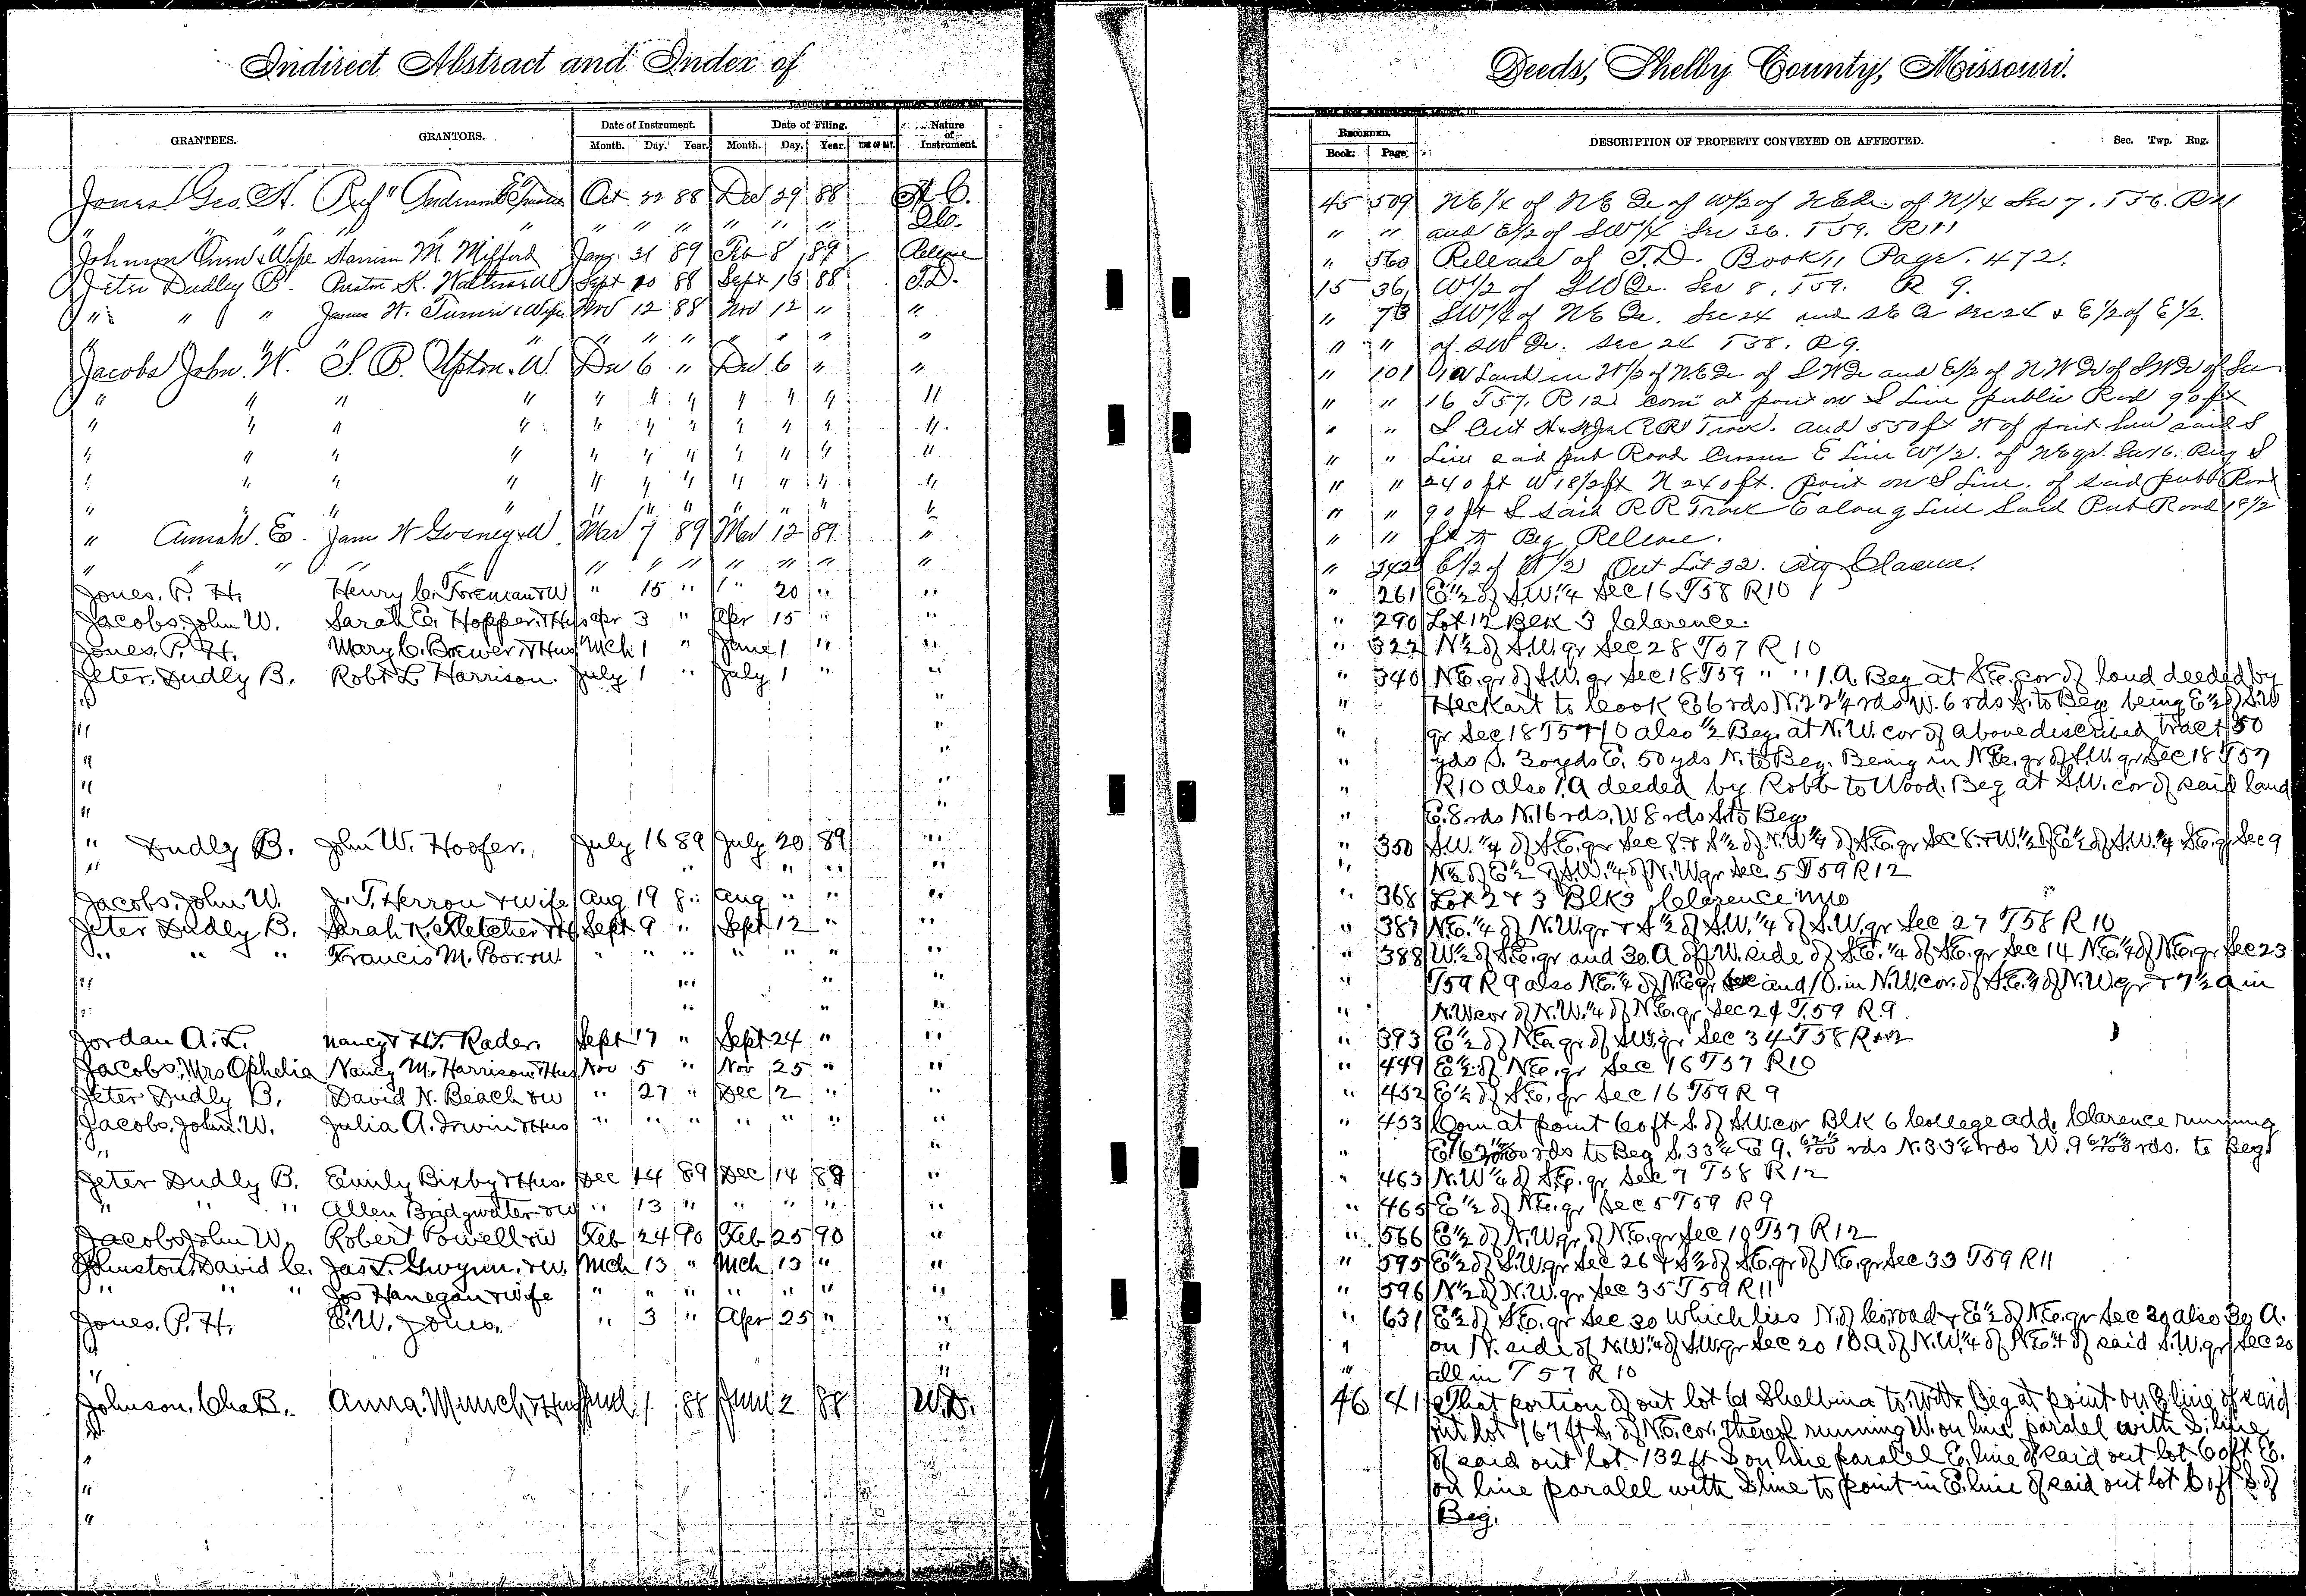 Indirect Abstract and Index of
Deeds, Shelby County, Missouri.
GRANTEES. GRANTORS. Date of Instrument. Date of Filing. Nature of Instrument.
Month. Day. Year. Month. Day. Year.
RECORDED. DESCRIPTION OF PROPERTY CONVEYED OR AFFECTED. Sec. Twp. Rng.
Book. Page.
Jones Geo. H. Oct 22 88 Dec 29 88 45 509 NE 1/4 of NE Qr of W 1/2 of of N 1/4 Sec 7. T56. R11
" " " " " " " " " " " and E 1/2 of SW 1/4 Sec 36. T59. R11
Johnson Owen & Wife M. Mifford Jany 31 89 Feb 8 89 Release " 560 Release of T.D. Book 11 Page. 472.
Jeter Dudley B. K. Sept 10 88 Sept 16 88 T.D. 15 36 W 1/2 of SW Qr. Sec 8. T59. R 9.
" " " James H. Turner & Wife Nov 12 88 Nov 12 " " " 73 SW 1/4 of NE Qr. Sec 24 and SE Q Sec 24 & E 1/2 of E 1/2.
" " " " " " " " " of SW Qr. Sec 24 T58. R9.
Jacobs John. W. S. P. Upton. & W Dec 6 " Dec 6 " " " 101 Land in W 1/2 of N.E Qr. of S W Qr and E 1/2 of N W Qr of S W Qr of Sec
" " " " " " " " " " " " " 16 T57. R.12. Com at point on S Line public Road 90 ft
" " " " " " " " " " " " " S R R Track. and 550 ft of point said S
" " " " " " " " " " " " " Line said pub Road E Line W 1/2. of NE qr. Sec 16. S
" " " " " " " " " " " " " 240 ft W 18 1/2 ft N 240 ft. point on S Line. of said publ Road
" " " " " " " " " " " " " 90 ft S said R R Track E along Line Said Pub Road 18 1/2
" Annah. E. James W Gosney & W Mar 7 89 Mar 12 89 " " " ft to Beg Release.
" " " " " " " " " " " " 242 E 1/2 of W 1/2 Out Lot 22. Clarence.
Jones. P. H. Henry C. Foreman & W " 15 " " 20 " " " 261 E 1/2 of S.W. 1/4 Sec 16 T58 R10
Jacobs, John W. Sarah E. Hopper & Hus Apr 3 " Apr 15 " " " 290 Lot 12 Blk 3 Clarence.
Jones. P. H. Mary C. Brewer & Hus Mch 1 " June 1 " " " 322 N 1/2 of S.W. qr Sec 28 T57 R10
Jeter, Dudly B. Robt L Harrison. July 1 " July 1 " " " 340 N.E. qr of S.W. qr Sec 18 T59 " " 1.A. Beg at S.E. cor of land deeded by
" " " Heckart to Cook E 6 rds N. 22 1/4 rds W. 6 rds S. to Beg being E 1/2 of S.W
" " " qr Sec 18 T57 10 also 1/2 Beg. at N.W. cor of above discribed tract 50
" " " yds S. 30 yds E. 50 yds N. to Beg. Being in N.E. qr of S.W. qr Sec 18 T57
" " " R10 also 1.A deeded by Robb to Wood. Beg at S.W. cor of said land
" " " E. 8 rds N. 16 rds, W 8 rds S. to Beg
" Dudly B. John W. Hoofer. July 16 89 July 20 89 " " 350 S.W. 1/4 of S.E. qr Sec 8 & S 1/2 of N.W 1/4 of S.E. qr Sec 8. & W. 1/2 of E 1/2 of S.W. 1/4 S.E. qr Sec 9
" " " " " " N 1/2 of E 1/2 of S.W. 1/4 of N.W qr Sec. 5 T59 R12
Jacobs, John W. J. T. Herron & wife Aug 19 8" Aug " " " " 368 Lot 2 & 3 Blk 3 Clarence Mo
Jeter Dudly B. Sarah K. Fletcher & H Sept 9 " Sept 12 " " " 387 N.E. 1/4 of N.W. qr & S 1/2 of S.W. 1/4 of S.W. qr Sec 27 T58 R10
" " " Francis M. Poor & W " " " " " " " " 388 W 1/2 of S.E. qr and 30. A off W. side of S.E. 1/4 of S.E. qr Sec 14 N.E. 1/4 of N.E. qr Sec 23
" " " " " T59 R9 also N.E. 1/4 of N.E. qr and 10. in N.W. cor. of S.E. 1/4 of N.W. qr & 7 1/2 a in
" " " " " N.W cor of N.W. 1/4 of N.E. qr Sec 24 T.59 R.9.
Jordan A. L. Nancy & H.T. Rader. Sept 17 " Sept 24 " " " 393 E 1/2 of N.E. qr of S.W. qr Sec 34 T58 R12
Jacobs, Mrs Ophelia Nancy M. Harrison & Hus Nov 5 " Nov 25 " " " 449 E 1/2 of N.E. qr Sec 16 T57 R10
Jeter Dudly B. David N. Beach & W " 27 " Dec 2 " " " 452 E 1/2 of S.E. qr Sec 16 T59 R9
Jacobs, John. W. Julia A. Irwin & Hus " " " " " " " " 453 Com at point 60 ft S. of S.W. cor Blk 6 College add. Clarence running
" " " rds to Beg S. 33 1/4 E 9. rds N. 33 1/4 rds W. 9 rds. to Beg.
Jeter Dudly B. Emily Bixby & Hus. Dec 14 89 Dec 14 89 " " 463 N.W 1/4 of S.E. qr Sec 7 T58 R12
" " " Allen Bridgwater & W " 13 " " " " " " 465 E 1/2 of N.E. qr Sec 5 T59 R9
Jacobs John W. Robert Powell & W Feb 24 90 Feb 25 90 " " 566 E 1/2 of N.W. qr of N.E. qr Sec 10 T57 R12
Johnston, David C. Jas L. Gwynn. & W. Mch 13 " Mch 13 " " " 595 E 1/2 of S.W. qr Sec 26 & S 1/2 of S.E. qr of N.E. qr Sec 33 T59 R11
" " " Jos Hanegan & Wife " " " " " " " " 596 N 1/2 of N.W. qr Sec 35 T59 R11
Jones. P. H. E. W. Jones. " 3 " Apr 25 " " " 631 E 1/2 of S.E. qr Sec 30 which lies N. of Co. road & E 1/2 of N.E. qr Sec 30 also A.
" " on N. side of N.W. 1/4 of S.W. qr Sec 20 10. A of N.W. 1/4 of N.E. 1/4 of said S.W. qr Sec 20
" " " all in T57 R10
Johnson, Chas B. Anna. Munch & Hus June 1 88 June 2 88 W.D. 46 41 That portion of out lot 61 Shelbina to. Witt Beg at point on E line of said
" out lot 167 ft S. of N.E. cor. thereof running W. on line paralel with S. line
" of said out lot 132 ft S on line paralel E. line of said out lot 60 ft E.
" on line paralel with S line to point in E. line of said out lot 60 ft S of
" Beg.